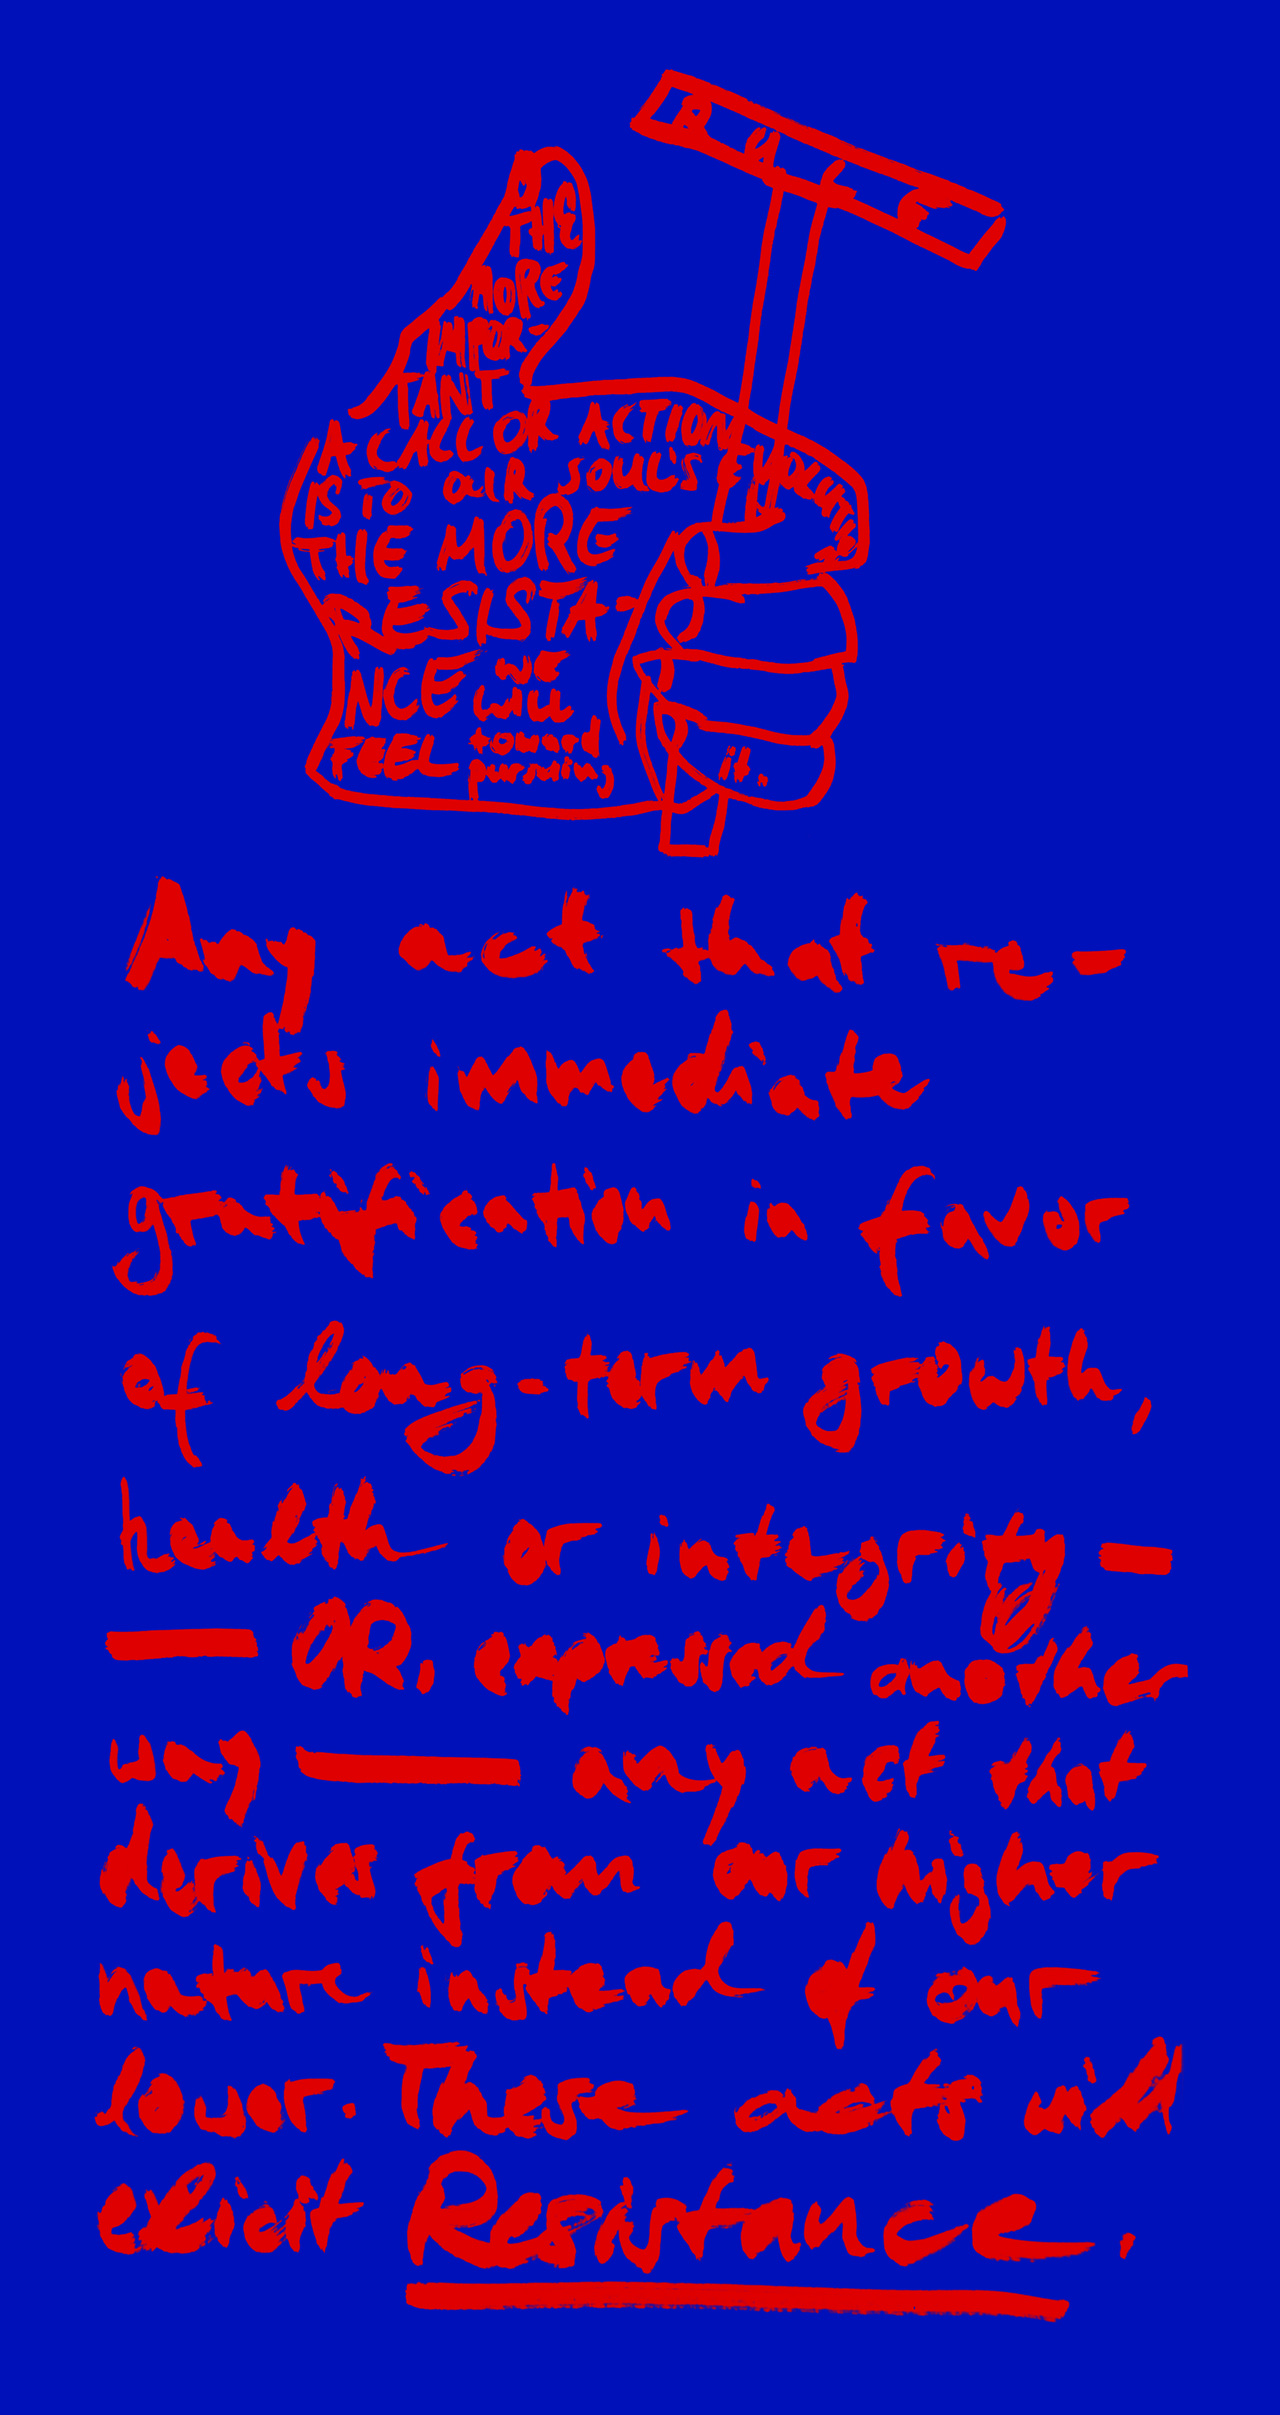 RULE
THE
MORE
IMPOR-
TANT
A CALL OR ACTION
IS TO OUR SOUL'S EVOLUTION
THE MORE
RESISTA-
NCE WE
WILL
FEEL toward
pursuing
it.
Any act that re-
jects immediate
gratification in favor
of long-term growth,
health or integrity —
— OR, expressed another
way — any act that
derives from our higher
nature instead of our
lower. These acts will
elicit Resistance.